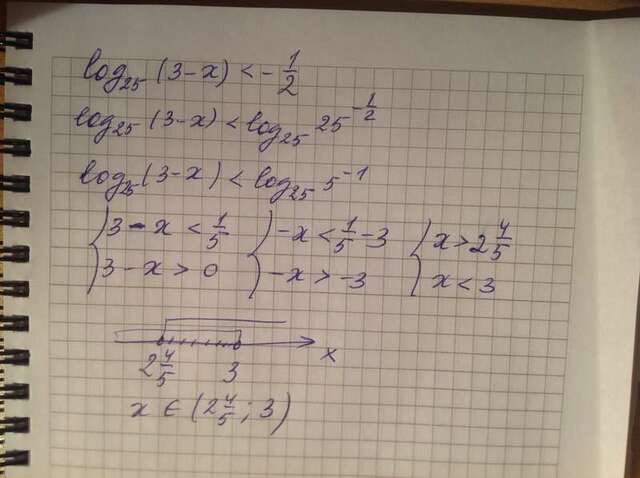 log₂₅ (3-x) < -1/2
log₂₅ (3-x) < log₂₅ 25^(-1/2)
log₂₅ (3-x) < log₂₅ 5⁻¹
{3-x < 1/5 {-x < 1/5-3 {x > 2 4/5
{3-x > 0 {-x > -3 {x < 3
2 4/5 3 x
x ∈ (2 4/5; 3)